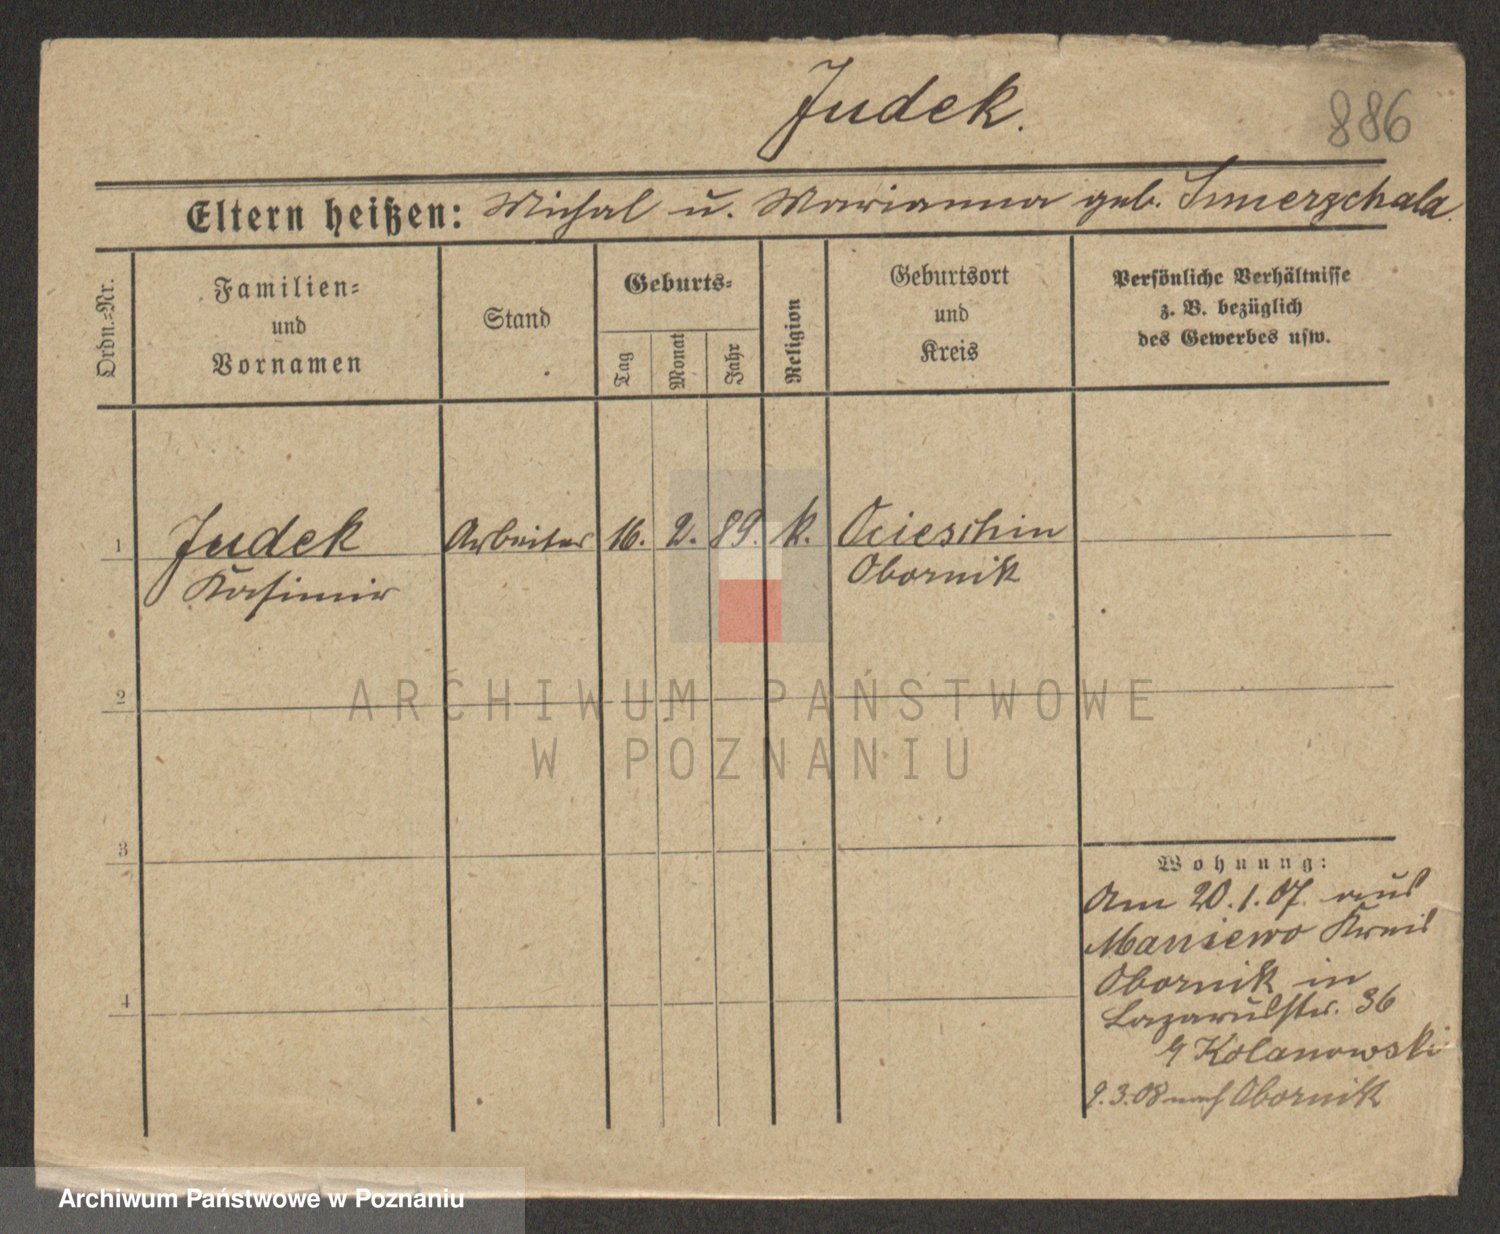 Judek.
886
Eltern heißen: Michal u. Marianna geb. Smierzchala.
Ordn.-Nr.
Familien-
und
Vornamen
Stand
Geburts-
Tag
Monat
Jahr
Religion
Geburtsort
und
Kreis
Persönliche Verhältnisse
z. B. bezüglich
des Gewerbes usw.
1 Judek Arbeiter 16. 2. 89. k. Ocieschin
Kasimir Obornik
2
ARCHIWUM PAŃSTWOWE
W POZNANIU
3
Wohnung:
Am 20.1.07. aus
Maniewo Kreis
Obornik in
4
Lazarusstr. 36
Kolanowski
9.3.08 nach Obornik
Archiwum Państwowe w Poznaniu